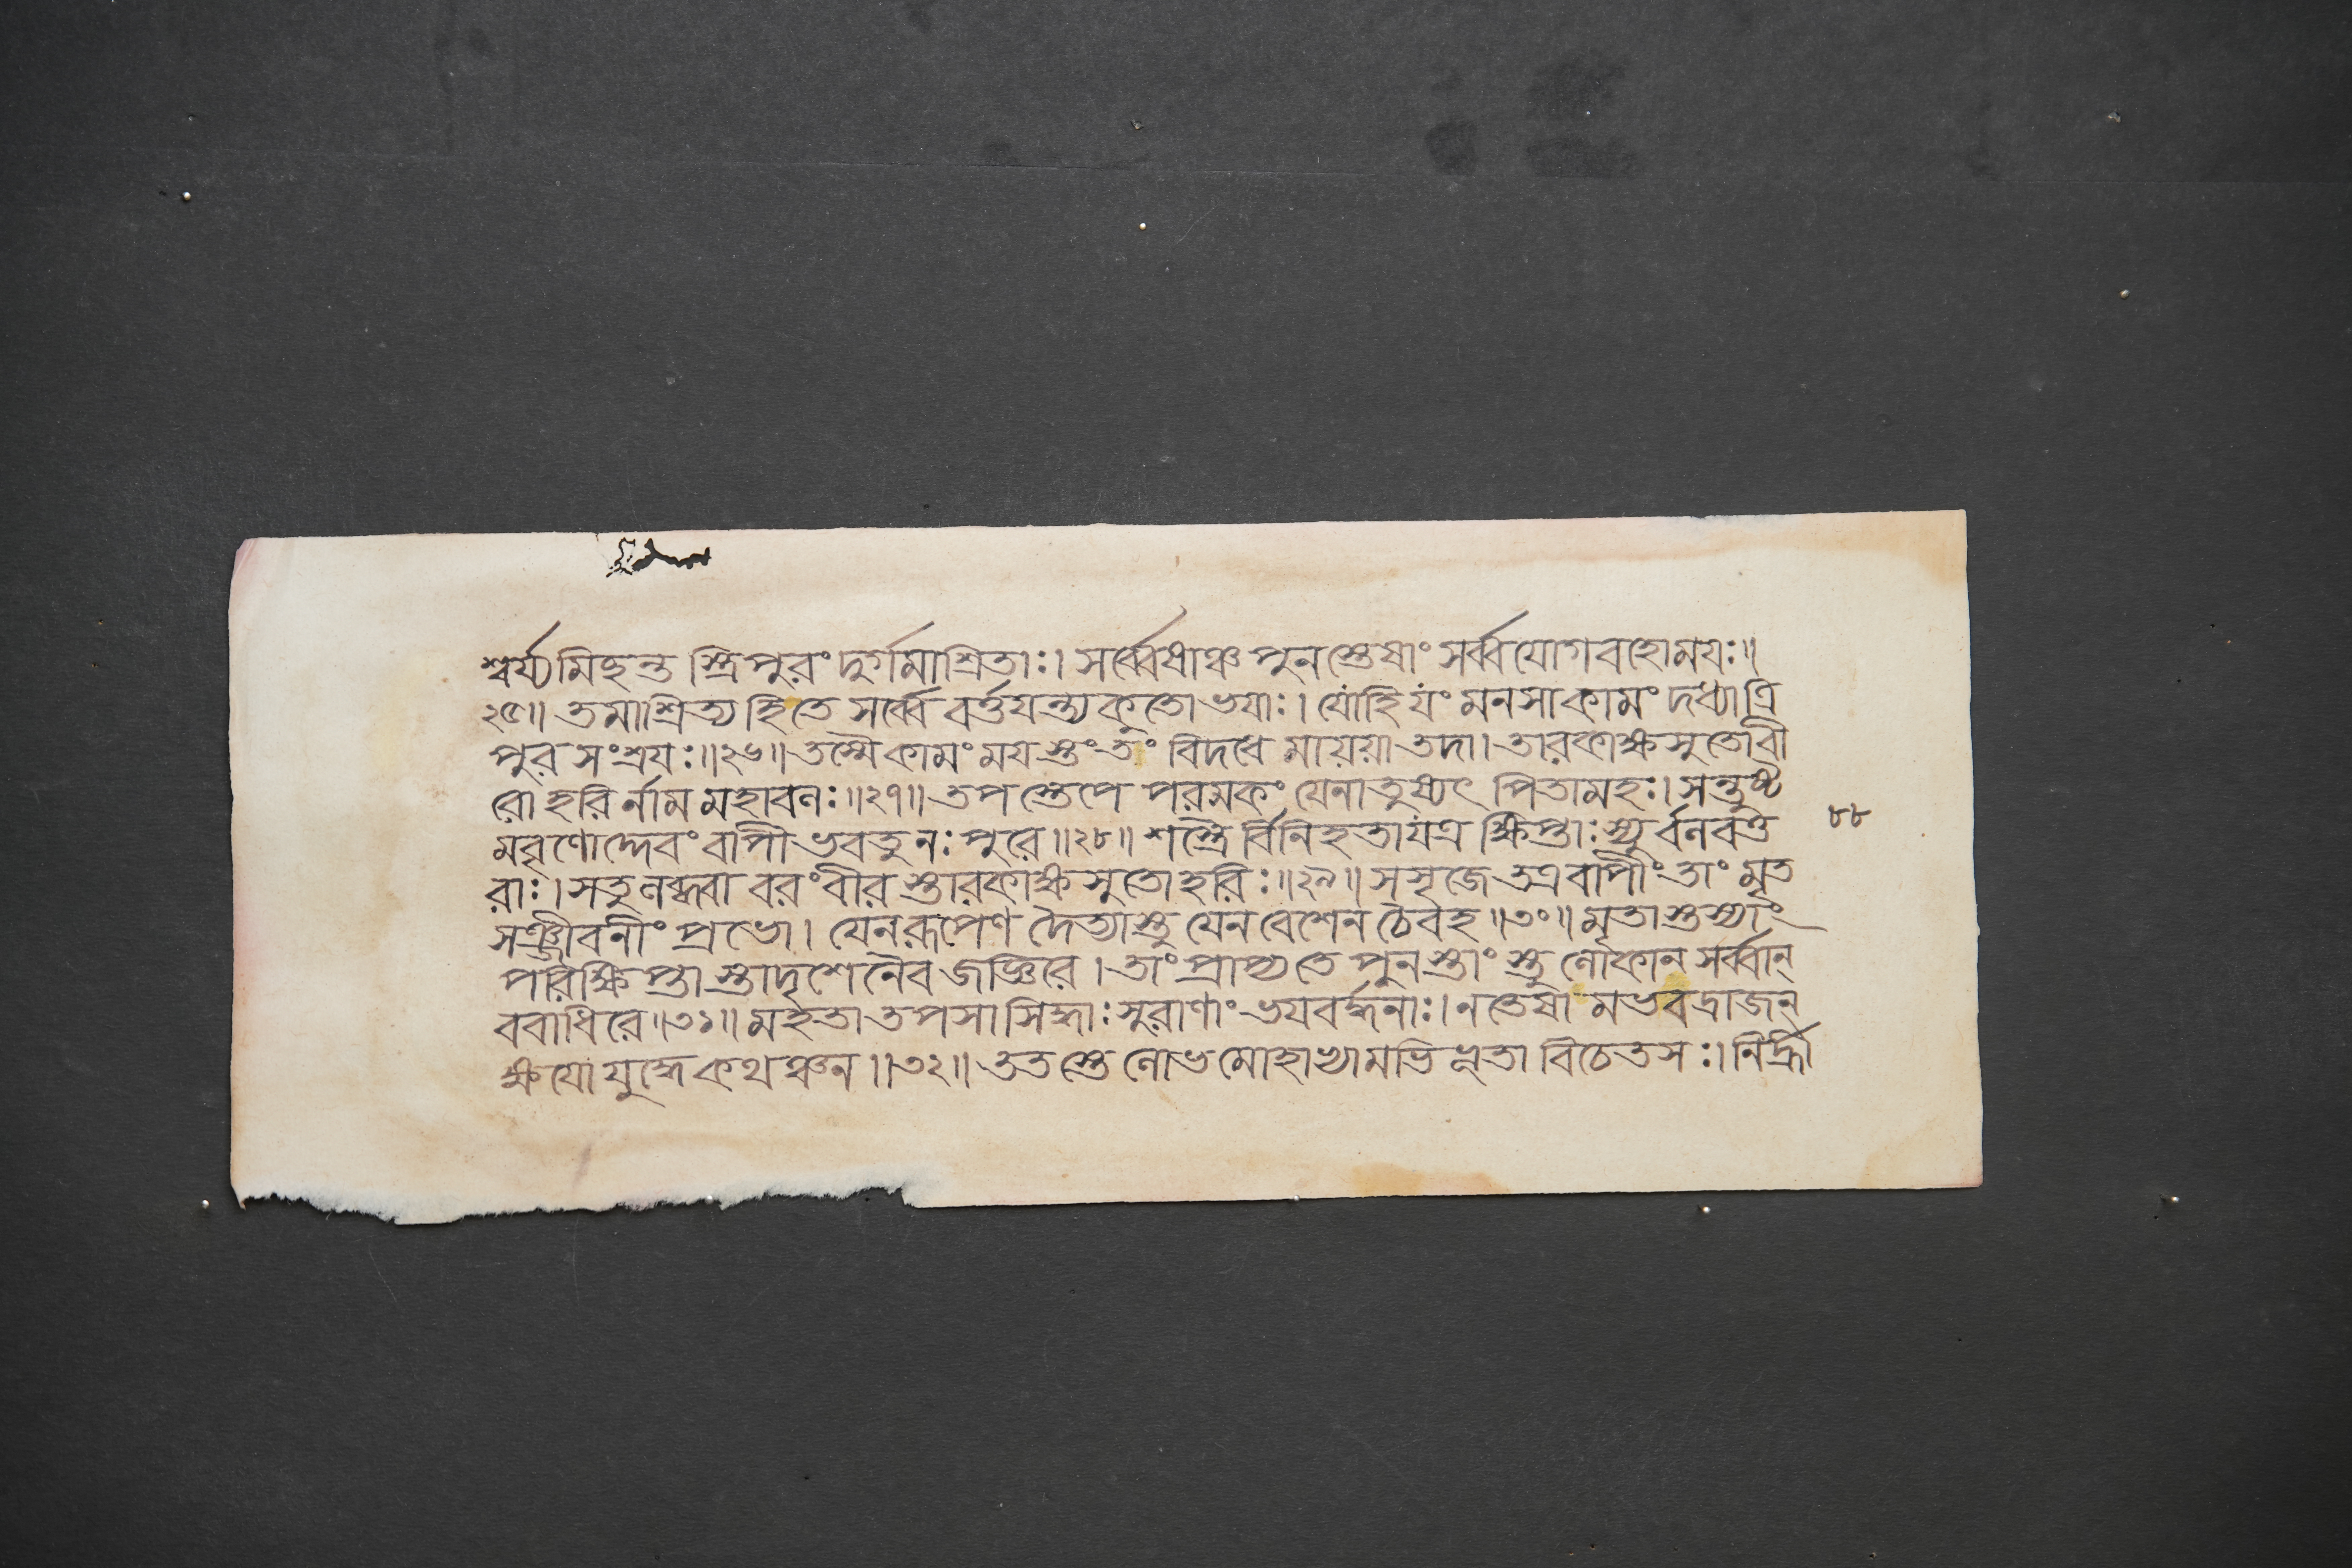 শ্বর্য্যমিহন্ত স্ত্রিপুরং দুর্গমাশ্রিতাঃ। সর্ব্বেষাঞ্চ পুনস্তেষাং সর্ব্বযোগবহোময়ঃ॥
২৫॥ তমাশ্রিত্য হিতে সর্ব্বে বর্ত্তয়ন্ত্যকুতো ভয়াঃ। যোহি যং মনসাকামং দধ্যাত্রি
পুর সংশ্রয়ঃ॥২৬॥ তস্মৈকামং ময়স্তং তং বিদধে মায়য়া তদা। তারকাক্ষসুতোবী
রো হরির্নাম মহাবলঃ॥২৭॥ তপস্তেপে পরমকং যেনাতুষ্যৎ পিতামহঃ। সন্তুষ্ট
মবৃণোদ্দেবং বাপী ভবতু নঃ পুরে॥২৮॥ শস্ত্রৈর্বিনিহতাযত্র ক্ষিপ্তাঃ স্যুর্বলবত্ত
৮৮
রাঃ। সতুলব্ধবা বরং বীর স্তারকাক্ষসুতোহরিঃ॥২৯॥ সসৃজে তত্র বাপীং তাং মৃত
সঞ্জীবনীং প্রভো। যেনরূপেণ দৈত্যাস্তু যেন বেশেন চৈবহ॥৩০॥ মৃতাস্তস্যাং
পরিক্ষিপ্তা স্তাদৃশেনৈব জজ্ঞিরে। তাং প্রাপ্যতে পুনস্তাংস্তু লোকান সর্ব্বান্
ববাধিরে॥৩১॥ মহতা তপসা সিদ্ধাঃ সুরাণাং ভয়বর্দ্ধনাঃ। নতেষা মভবদ্রাজন্
ক্ষয়ো যুদ্ধে কথঞ্চন॥৩২॥ ততস্তে লোভমোহাভ্যামভিপ্লুতা বিচেতসঃ। নির্হ্রী